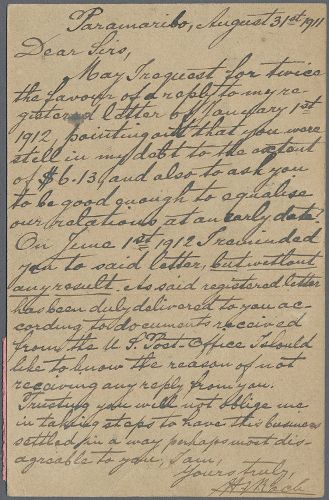 Paramaribo, August 31st 191
Dear Sirs,
May I request for twice
the favour of a reply to my re-
gistered letter of January 1st
1912, pointing out that you were
still in my debt to the extent
of $6.13, and also to ask you
to be good enough to equalise
our relations at an early date.
On June 1st 1912 I reminded
you to said letter, but without
any result. As said registered letter
has been duly delivered to you ac-
cording to documents received
from the U.S. Post-Office I should
like to know the reason of not
receiving any reply from you.
Trusting you will not oblige me
in taking steps to have this business
settled in a way perhaps most dis-
agreable to you, I am,
Yours truly,